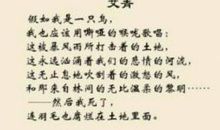 艾青
假如我是一只鸟，
我也应该用嘶哑的喉咙歌唱：
这被暴风雨所打击着的土地，
这永远汹涌着我们的悲愤的河流，
这无止息地吹刮着的激怒的风，
和那来自林间的无比温柔的黎明……
——然后我死了，
连羽毛也腐烂在土地里面。